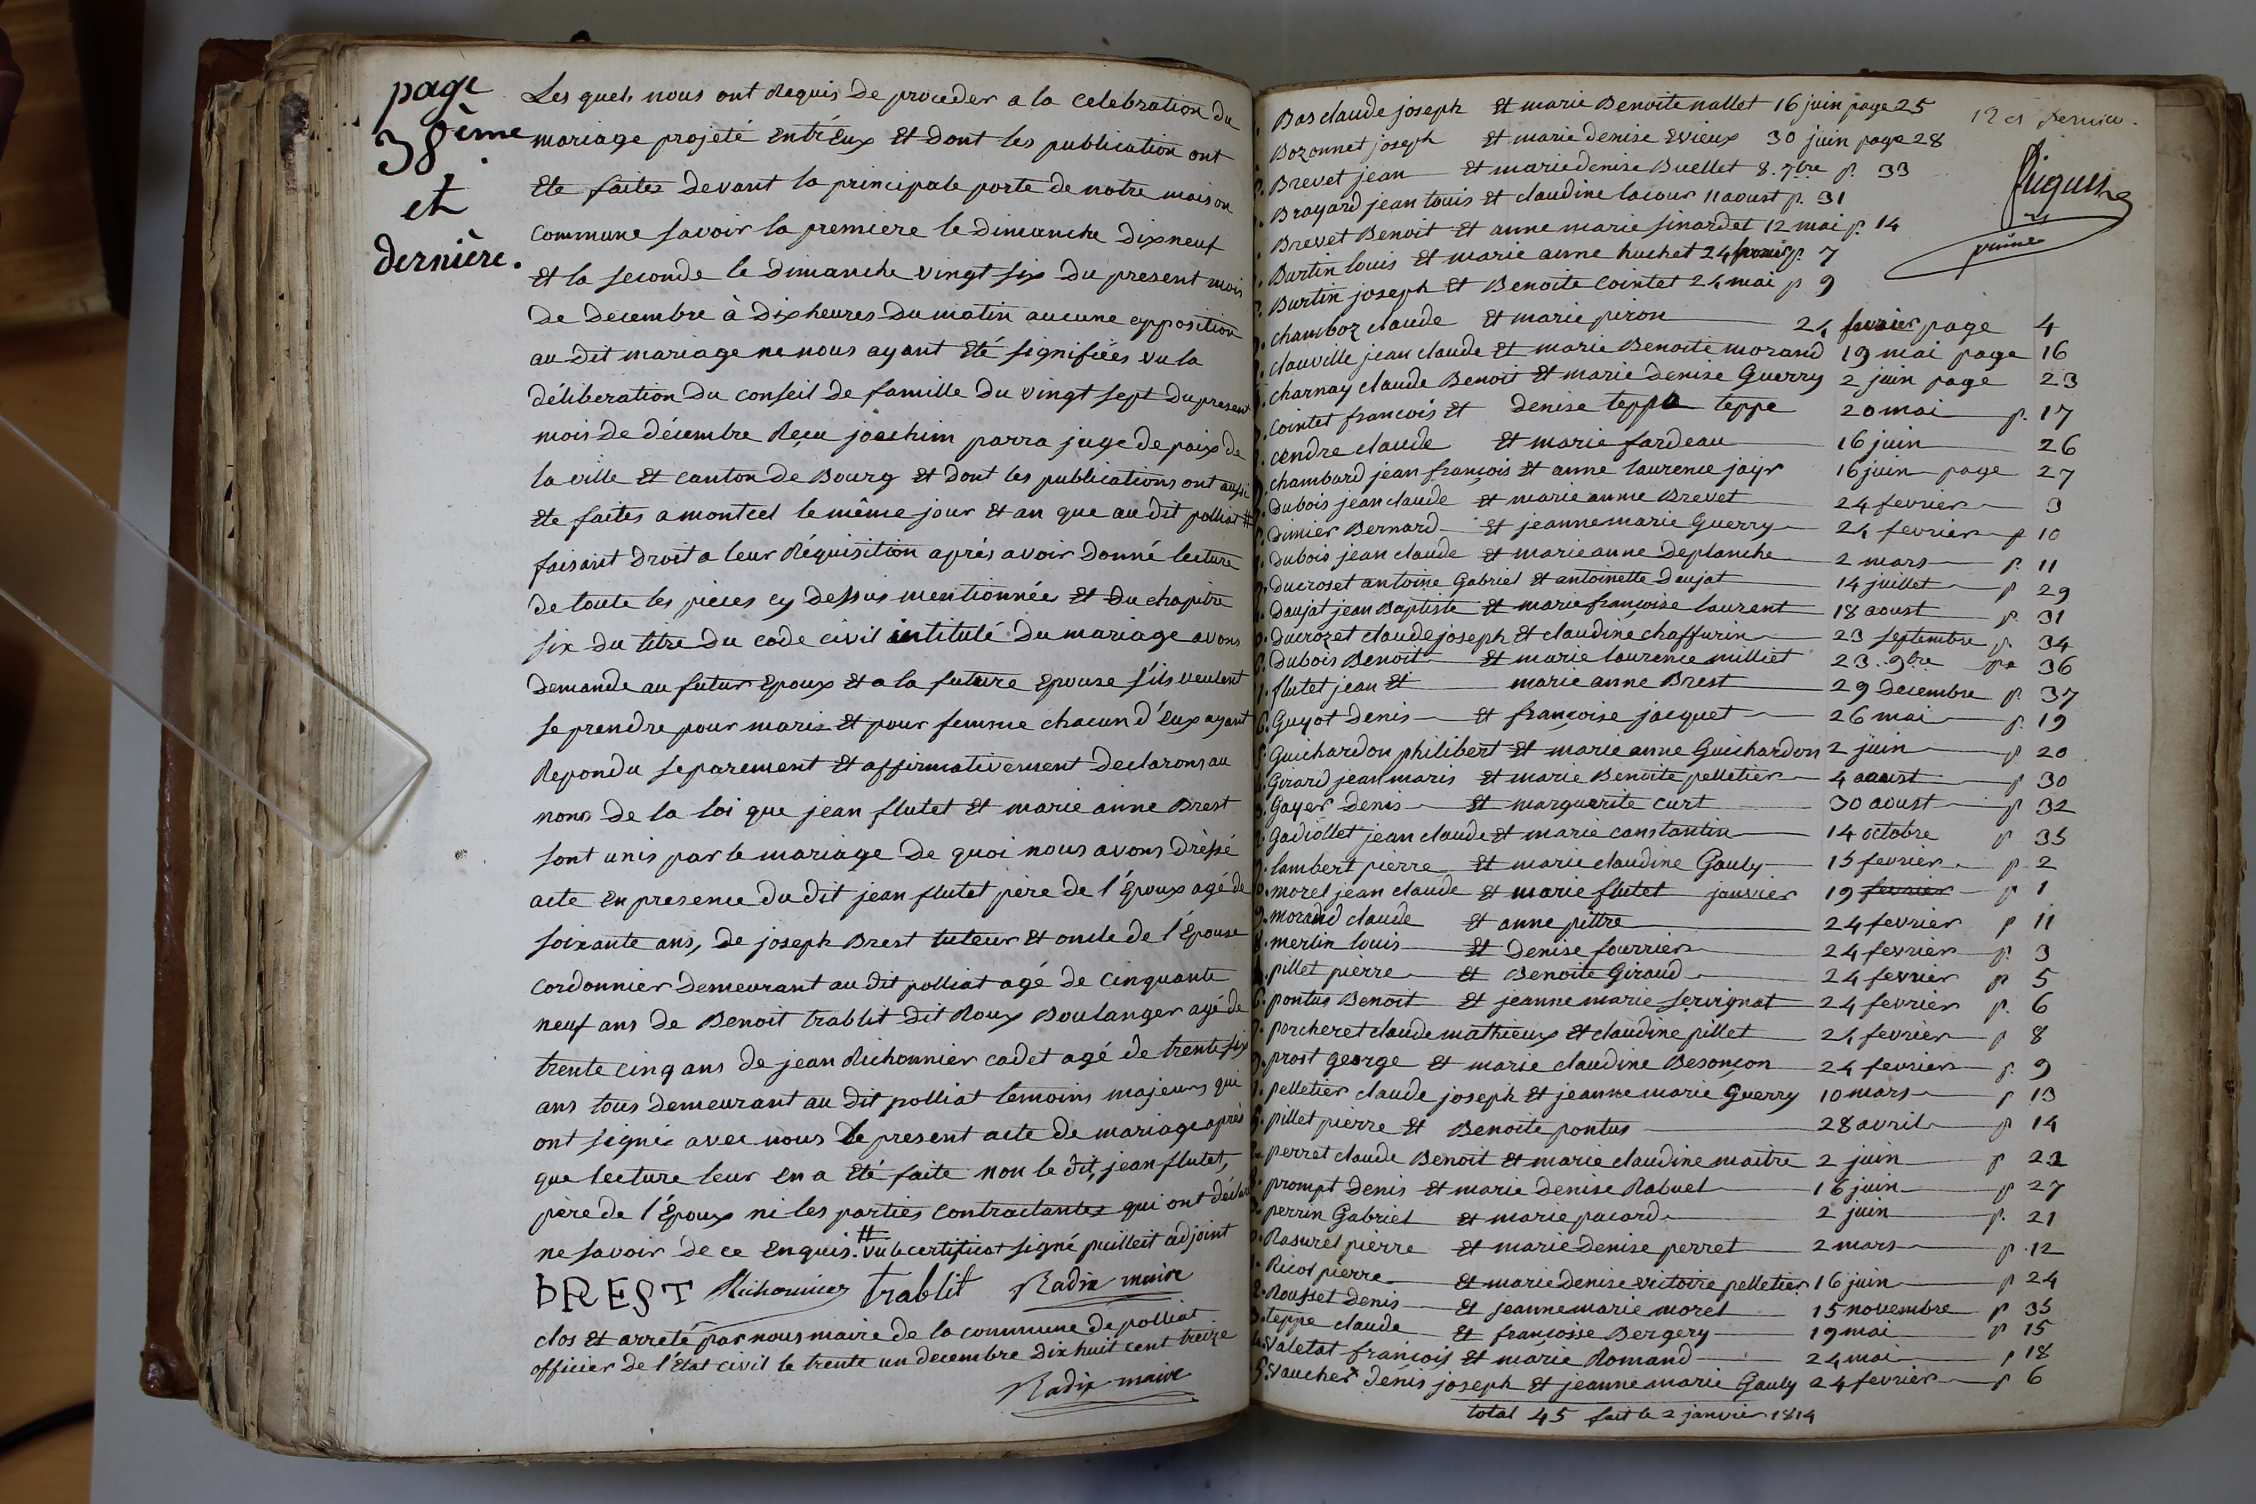 page
38ème
et
dernière.
Les quels nous ont Requis De proceder a la celebration du
mariage projeté entr'Eux Et Dont les publication ont
Ete faites devant la principale porte de notre maison
commune savoir la premiere le dimanche dixneuf
Et la seconde le dimanche vingt six Du present mois
De Decembre à Dix heures Du matin aucune opposition
au dit mariage ne nous ayant Eté signifiées vu la
déliberation Du conseil de famille Du vingt sept Du present
mois de décembre Reçu joachim parra juge de paix de
la ville Et canton de Bourg Et dont les publications ont aussi
Ete faites a montcel le même jour Et an que au dit polliat #
faisant Droit a leur Réquisition aprés avoir Donné lecture
de toute les pieces cy Dessus mentionnée Et Du chapitre
six du titre Du code civil intitulé Du mariage avons
Demande au futur Epoux Et a la future Epouse s'ils veulent
se prendre pour maris Et pour femme chacun d'Eux ayant
Repondu separement Et affirmativement Declarons au
nom de la loi que jean flutet Et marie anne Brest
sont unis par le mariage De quoi nous avons Dréssé
acte En presence du dit jean flutet père de l'Epoux agé de
soixante ans, de joseph Brest tuteur Et oncle de l'Epouse
cordonnier Demeurant au dit polliat agé de cinquante
neuf ans de Benoit trablit dit Roux Boulanger agé de
trente cinq ans de jean Richonnier cadet agé de trente six
ans tous demeurant au dit polliat temoins majeurs qui
ont signé avec nous le present acte de mariage après
que lecture leur En a Eté faite non le dit jean flutet,
père de l'Epoux ni les parties contractantes qui ont déclaré
ne savoir de ce Enquis. # vu le certificat signé puilleit adjoint
BREST Richonnier trablit Radix maire
clos Et arreté par nous maire de la commune de polliat
officier de l'Etat civil le trente un decembre Dix huit cent treize
Radix maire
Bas claude joseph Et marie Benoite nallet 16 juin page 25
Bozonnet joseph Et marie denise Evieux 30 juin page 28
Brevet jean Et marie denise Buellet 8. 7bre p. 33
Brayard jean louis Et claudine lacour 11 aoust p. 31
Brevet Benoit Et anne marie sinardet 12 mai p. 14
Burtin louis Et marie anne huchet 24 fevrier p. 7
Burtin joseph Et Benoite Cointet 24 mai p 9
chamboz claude Et marie piron 24 fevrier page 4
clauville jean claude Et marie Benoite morand 19 mai page 16
charnay claude Benoit Et marie denise Guerry 2 juin page 23
Cointet francois Et Denise teppe teppe 20 mai p. 17
cendre claude Et marie fardeau 16 juin 26
chambard jean françois Et anne laurence jayr 16 juin page 27
Dubois jean claude Et marie anne Brevet 24 fevrier 3
Dimier Bernard Et jeanne marie Guerry 24 fevrier p 10
Dubois jean claude Et marie anne Deplanche 2 mars p. 11
Ducroset antoine Gabriel Et antoinette Daujat 14 juillet p 29
Daujat jean Baptiste Et marie françoise laurent 18 aoust p. 31
Ducrozet claude joseph Et claudine chaffurin 23 septembre p. 34
Dubois Benoit Et marie laurence milliet 23. 9bre pe 36
flutet jean Et marie anne Brest 29 Decembre p. 37
Guyot Denis Et françoise jacquet 26 mai p. 19
Guichardon philibert Et marie anne Guichardon 2 juin p 20
Girard jean maris Et marie Benoite pelletier 4 aoust p 30
Gayer Denis Et marguerite curt 30 aoust p 32
Gadiollet jean claude Et marie constantin 14 octobre p 35
lambert pierre Et marie claudine Gauly 15 fevrier p. 2
morel jean claude Et marie flutet janvier 19 fevrier p 1
morand claude Et anne pittre 24 fevrier p 11
merlin louis Et Denise fourrier 24 fevrier p. 3
pillet pierre Et Benoite Giraud 24 fevrier p 5
pontus Benoit Et jeanne marie servignat 24 fevrier p. 6
porcheret claude mathieux Et claudine pillet 24 fevrier p 8
prost george Et marie claudine Besonçon 24 fevrier p. 9
pelletier claude joseph Et jeanne marie Guerry 10 mars p 13
pillet pierre Et Benoite pontus 28 avril p 14
perret claude Benoit Et marie claudine maitre 2 juin p 22
prompt Denis Et marie Denise Rabuel 16 juin p 27
perrin Gabriel Et marie pacard 2 juin p. 21
Rasurel pierre Et marie Denise perret 2 mars p. 12
Ricol pierre Et marie denise victoire pelletier 16 juin p 24
Rousset Denis Et jeanne marie morel 15 novembre p 35
teppe claude Et françoise Bergery 19 mai p 15
Valetat françois Et marie Romand 24 mai p 18
Vaucher denis joseph Et jeanne marie Gauly 24 fevrier p 6
total 45 fait le 2 janvier 1814